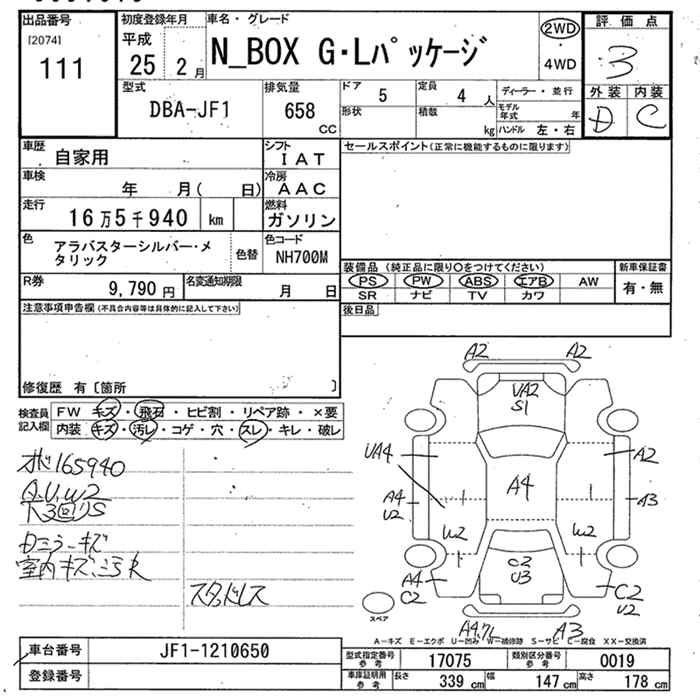 出品番号 初度登録年月 車名・グレード 評価点
[2074] 平成 2WD
111 25 2月 N_BOX G・Lパッケージ 4WD 3
型式 排気量 ドア 定員 ディーラー・並行 外装 内装
DBA-JF1 658 CC 5 4人 D C
形状 積載 kg モデル年式 年
ハンドル 左・右
車歴 自家用 シフト IAT セールスポイント(正常に機能するものに限ります)
車検 年 月( 日) 冷房 AAC
走行 16万5千940 km 燃料 ガソリン
色 アラバスターシルバー・メタリック 色替 色コード NH700M
装備品(純正品に限り○をつけてください) 新車保証書
R券 9,790円 名変通知期限 月 日 PS PW ABS エアB AW 有・無
SR ナビ TV カワ
注意事項申告欄(不具合内容等は具体的に記入して下さい) 後日品
修復歴 有〔箇所 〕
検査員記入欄 FW キズ・飛石・ヒビ割・リペア跡・×要
内装 キズ・汚レ・コゲ・穴・スレ・キレ・破レ
165940
A.U.W2
下3回りS
ミラーキズ
室内キズ、汚れ
スタッドレス
A2 A2
UA2
S1
UA4 A2
A4
A4 A3
U2
W2 W2
C2
U3
A4 C2
C2 U2
スペア
A3
A―キズ E―エクボ U―凹み W―補修跡 S―サビ C―腐食 XX―交換済
車台番号 JF1-1210650 型式指定番号 参考 17075 類別区分番号 参考 0019
登録番号 車庫証明用 参考 長さ 339 cm 幅 147 cm 高さ 178 cm